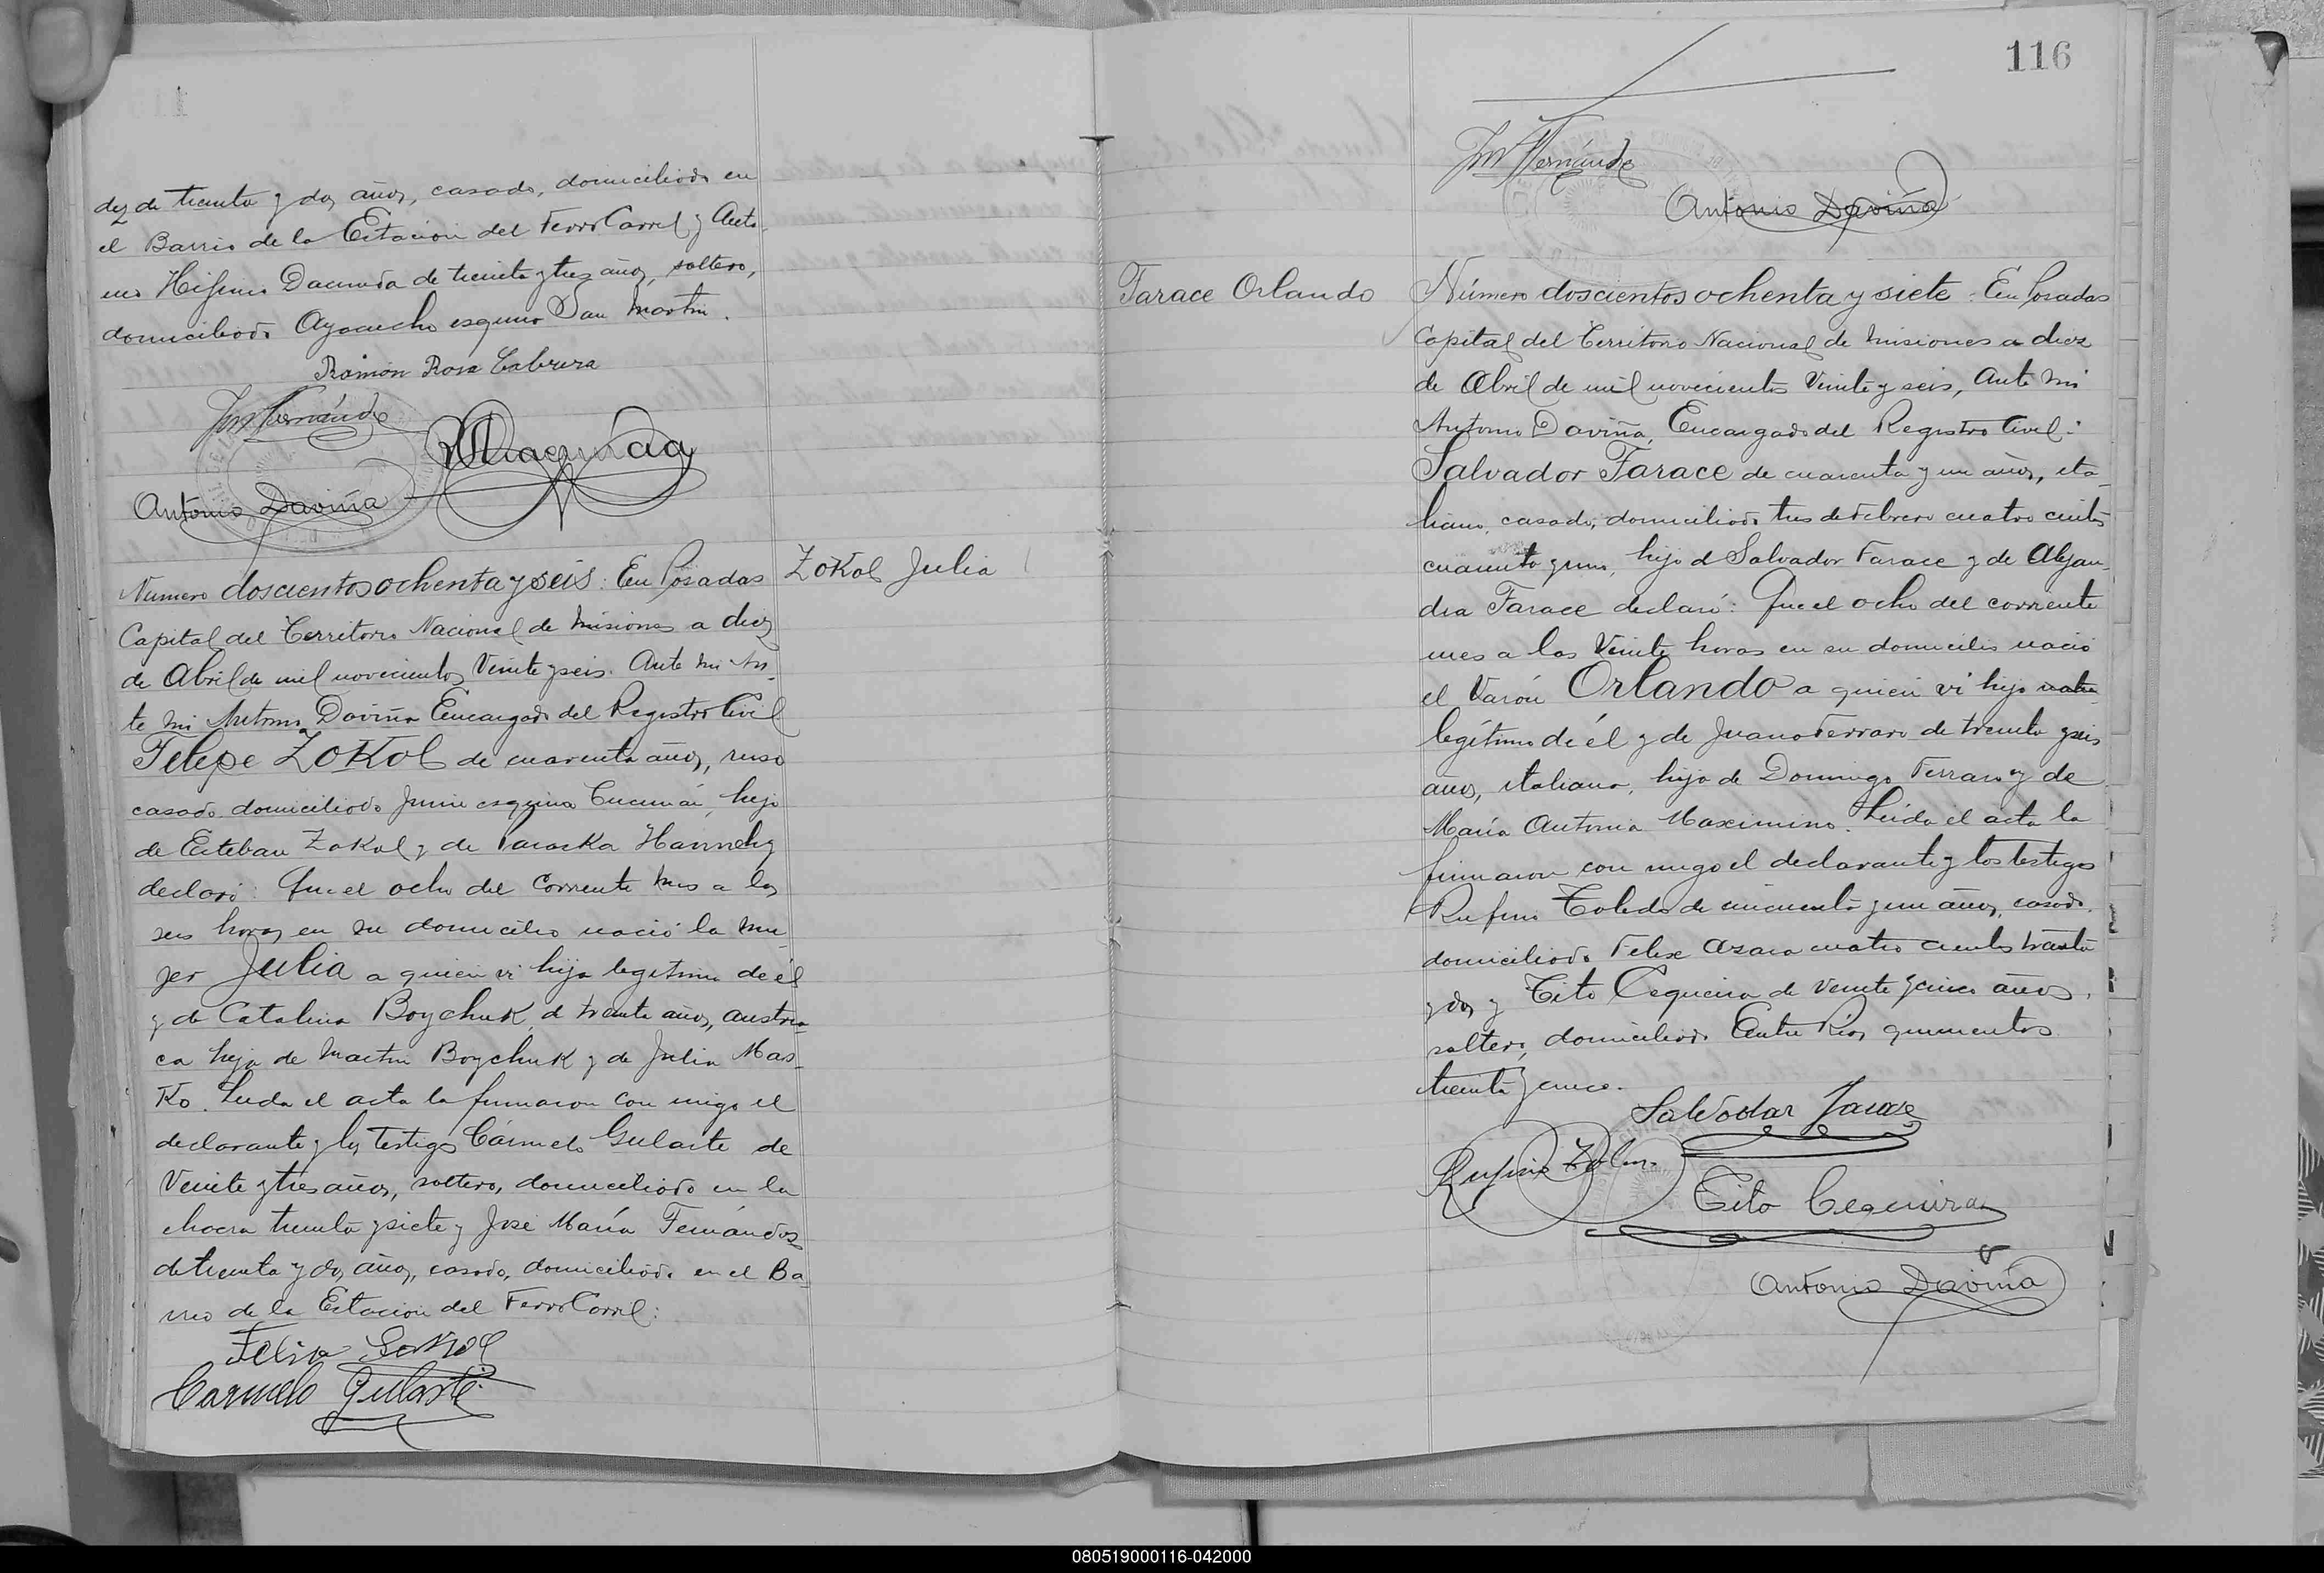 dez de treinta y dos años, casado, domiciliado en
el Barrio de la Estación del FerroCarril y Anto-
nio Higinio Dacunda de treinta y tres años, soltero,
domiciliado Ayacucho esquina San Martin.
Ramón Rosa Cabrera
JM Fernández
Antonio Daviña
Zokol Julia
Número doscientos ochenta y seis: En Posadas
Capital del Territorio Nacional de Misiones a diez
de Abril de mil novecientos Veinte y seis. Ante mi An-
te mi Antonio Daviña Encargado del Registro Civil
Felipe Zokol de cuarenta años, ruso
casado domiciliado Junin esquina Tucumán, hijo
de Esteban Zokol y de Paraska
declaró: Que el ocho del corriente mes a las
seis horas en su domicilio nació la mu-
jer Julia a quien vi hija legitima de él
y de Catalina Boychuk, de treinta años, austria-
ca hija de Martin Boychuk y de Julia Mas-
Ko. Leida el acta la firmaron con migo el
declarante y los testigos Cármelo Gularte de
Veinte y tres años, soltero, domiciliado en la
chacra treinta y siete y José María Fernández
de treinta y dos años, casado, domiciliado en el Ba-
rrio de la Estación del FerroCarril:
Carmelo Gularte
116
JM Fernández
Antonio Daviña
Farace Orlando
Número doscientos ochenta y siete: En Posadas
Capital del Territorio Nacional de Misiones a diez
de Abril de mil novecientos Veinte y seis, Ante mi
Antonio Daviña, Encargado del Registro Civil:
Salvador Farace de cuarenta y un años, ita-
liano, casado, domiciliado tres de Febrero cuatro cientos
cuarenta y uno, hijo d Salvador Farace y de Alejan-
dra Farace declaró: Que el ocho del corriente
mes a las Veinte horas en su domicilio nació
el Varón Orlando a quien vi hijo
legítimo de él y de Juana Ferraro de treinta y seis
años, italiana, hija de Domingo Ferraro y de
María Antonia Maximino. Leida el acta la
firmaron con migo el declarante y los testigos
Rufino Toledo de cincuenta y un años, casado,
domiciliado Felix Azara cuatro cientos treinta
y dos y Tito Cequeira de Veinte y cinco años,
soltero, domiciliado Entre Rios quinientos
treinta y cinco.
Salvador Farace
Tito Cequeira
Antonio Daviña
080519000116-042000